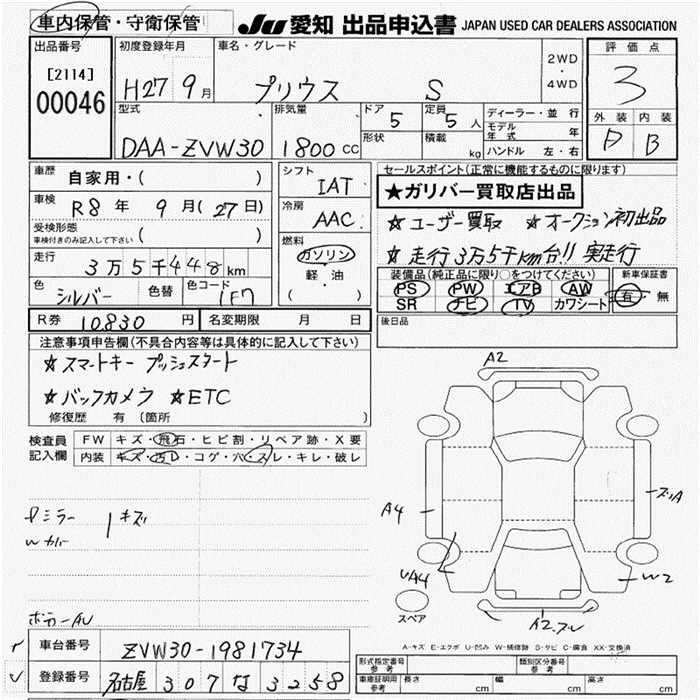 車内保管・守衛保管
JU 愛知 出品申込書 JAPAN USED CAR DEALERS ASSOCIATION
出品番号
[2114]
00046
初度登録年月
H27 9月
車名・グレード
プリウス S
2WD
・
4WD
評価点
3
外装 内装
D B
型式
DAA-ZVW30
排気量
1800 CC
ドア 5
形状
定員 5人
積載 kg
ディーラー・並行
モデル年式 年
ハンドル 左・右
車歴
自家用・( )
車検
R8年 9月(27日)
受検形態
車検付きのみ記入して下さい ( )
走行
3万5千448km
色
シルバー
色替
色コード
1F7
シフト
IAT
冷房
AAC
燃料
ガソリン
軽・油
( )
セールスポイント(正常に機能するものに限ります)
★ガリバー買取店出品
☆ユーザー買取 ☆オークション初出品
☆走行3万5千km台!! 実走行
装備品(純正品に限り○をつけてください)
PS PW エアB AW
SR ナビ TV カワシート
新車保証書
有・無
R券 10830円
名変期限 月 日
後日品
注意事項申告欄(不具合内容等は具体的に記入して下さい)
☆スマートキー プッシュスタート
☆バックカメラ ☆ETC
修復歴 有(箇所 )
検査員記入欄
FW キズ・飛石・ヒビ割・リペア跡・X要
内装 キズ・汚レ・コゲ・穴・スレ・キレ・破レ
ミラー
Wカバー
キズ
A2
A4
ズリA
UA4
W2
スペア
A2
A-キズ E-エクボ U-凹み W-補修跡 S-サビ C-腐食 XX-交換済
車台番号 ZVW30-1981734
登録番号 名古屋 307 な 3258
形式指定番号 参考
類別区分番号 参考
車庫証明用 参考
長さ cm 幅 cm 高さ cm